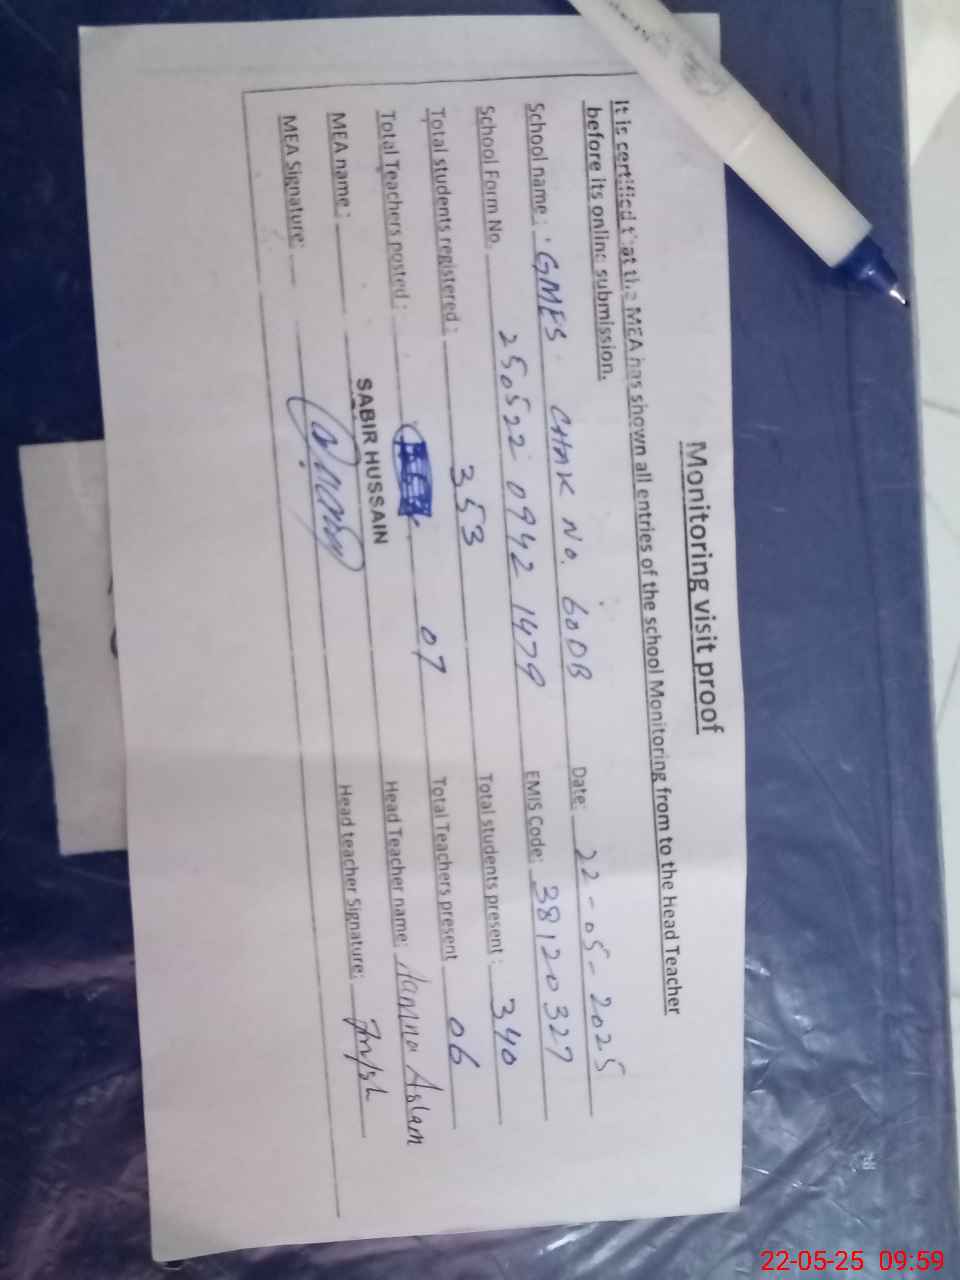 Monitoring visit proof
It is certified that the MEA has shown all entries of the school Monitoring from to the Head Teacher
before its online submission.
School name : GMES CHAK No. 60DB Date: 22-05-2025
School Form No. 250522 0942 1479 EMIS Code: 38120327
Total students registered : 353 Total students present : 340
Total Teachers posted : 07 Total Teachers present 06
MEA name : SABIR HUSSAIN Head Teacher name: Hamna Aslam
MEA Signature: Head teacher Signature:
22-05-25 09:59